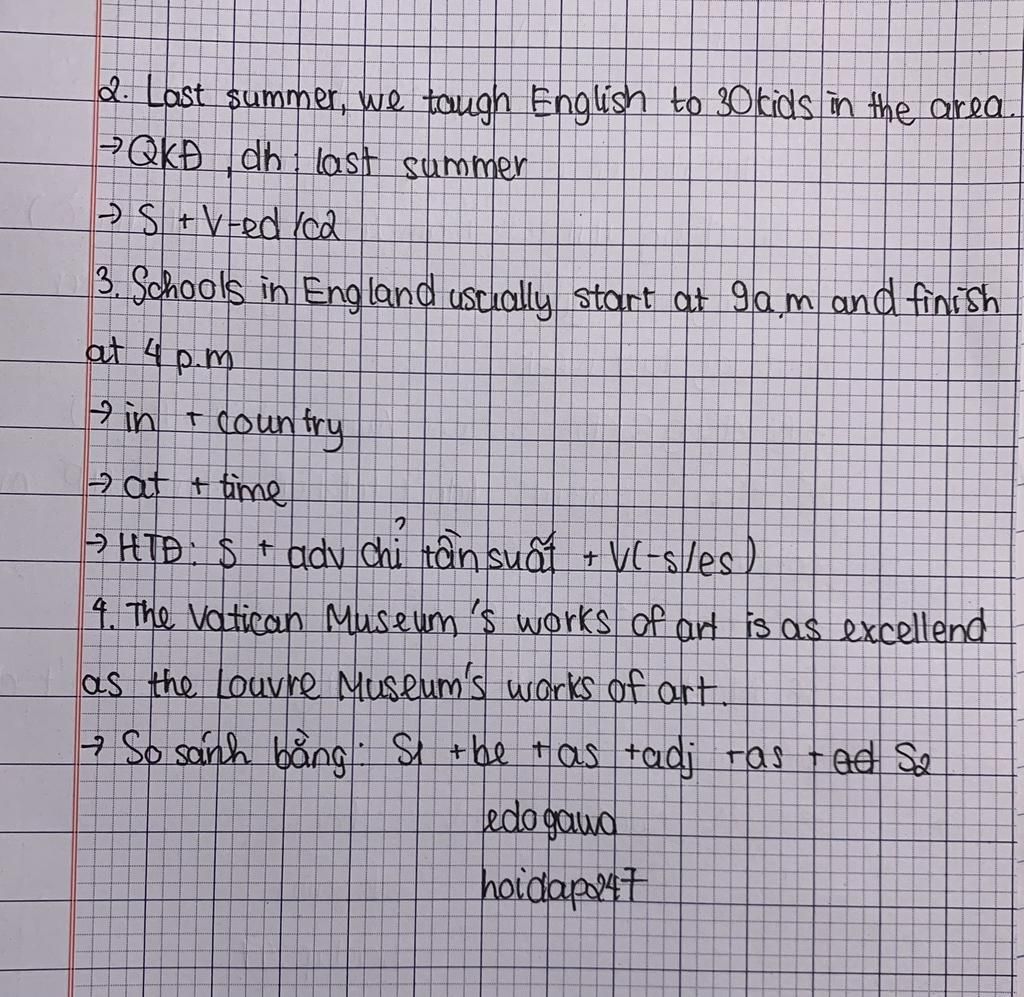 2. Last summer, we tough English to 30 kids in the area.
→ QKĐ, dh: last summer
→ S + V-ed/c2
3. Schools in England usually start at 9a.m and finish
at 4 p.m
→ in + country
→ at + time
→ HTĐ: S + adv chỉ tần suất + V(-s/es)
4. The Vatican Museum's works of art is as excellend
as the Louvre Museum's works of art.
→ So sánh bằng: S1 + be + as + adj + as + ed S2
edogawa
hoidap247